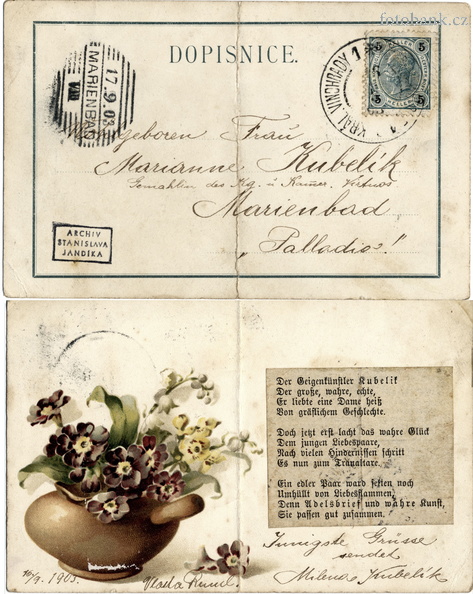 fotobanka.cz
DOPISNICE.
17.9.03
MARIENBAD
VIII
KRÁL. VINOHRADY 1
5 5
geboren Frau
Marianne Kubelík
Gemahlin des Kg. u. Kammer. Virtuos
Marienbad
„Palladio!"
ARCHIV
STANISLAVA
JANDÍKA
Der Geigenkünstler Kubelik
Der große, wahre, echte,
Er liebte eine Dame heiß
Von gräflichem Geschlechte.
Doch jetzt erst lacht das wahre Glück
Dem jungen Liebespaare,
Nach vielen Hindernissen schritt
Es nun zum Traualtare.
Ein edler Paar ward selten noch
Umhüllt von Liebesflammen,
Denn Adelsbrief und wahre Kunst,
Sie passen gut zusammen.
Innigste Grüsse
sendet
Milena Kubelík
16/9. 1903.
Vlada